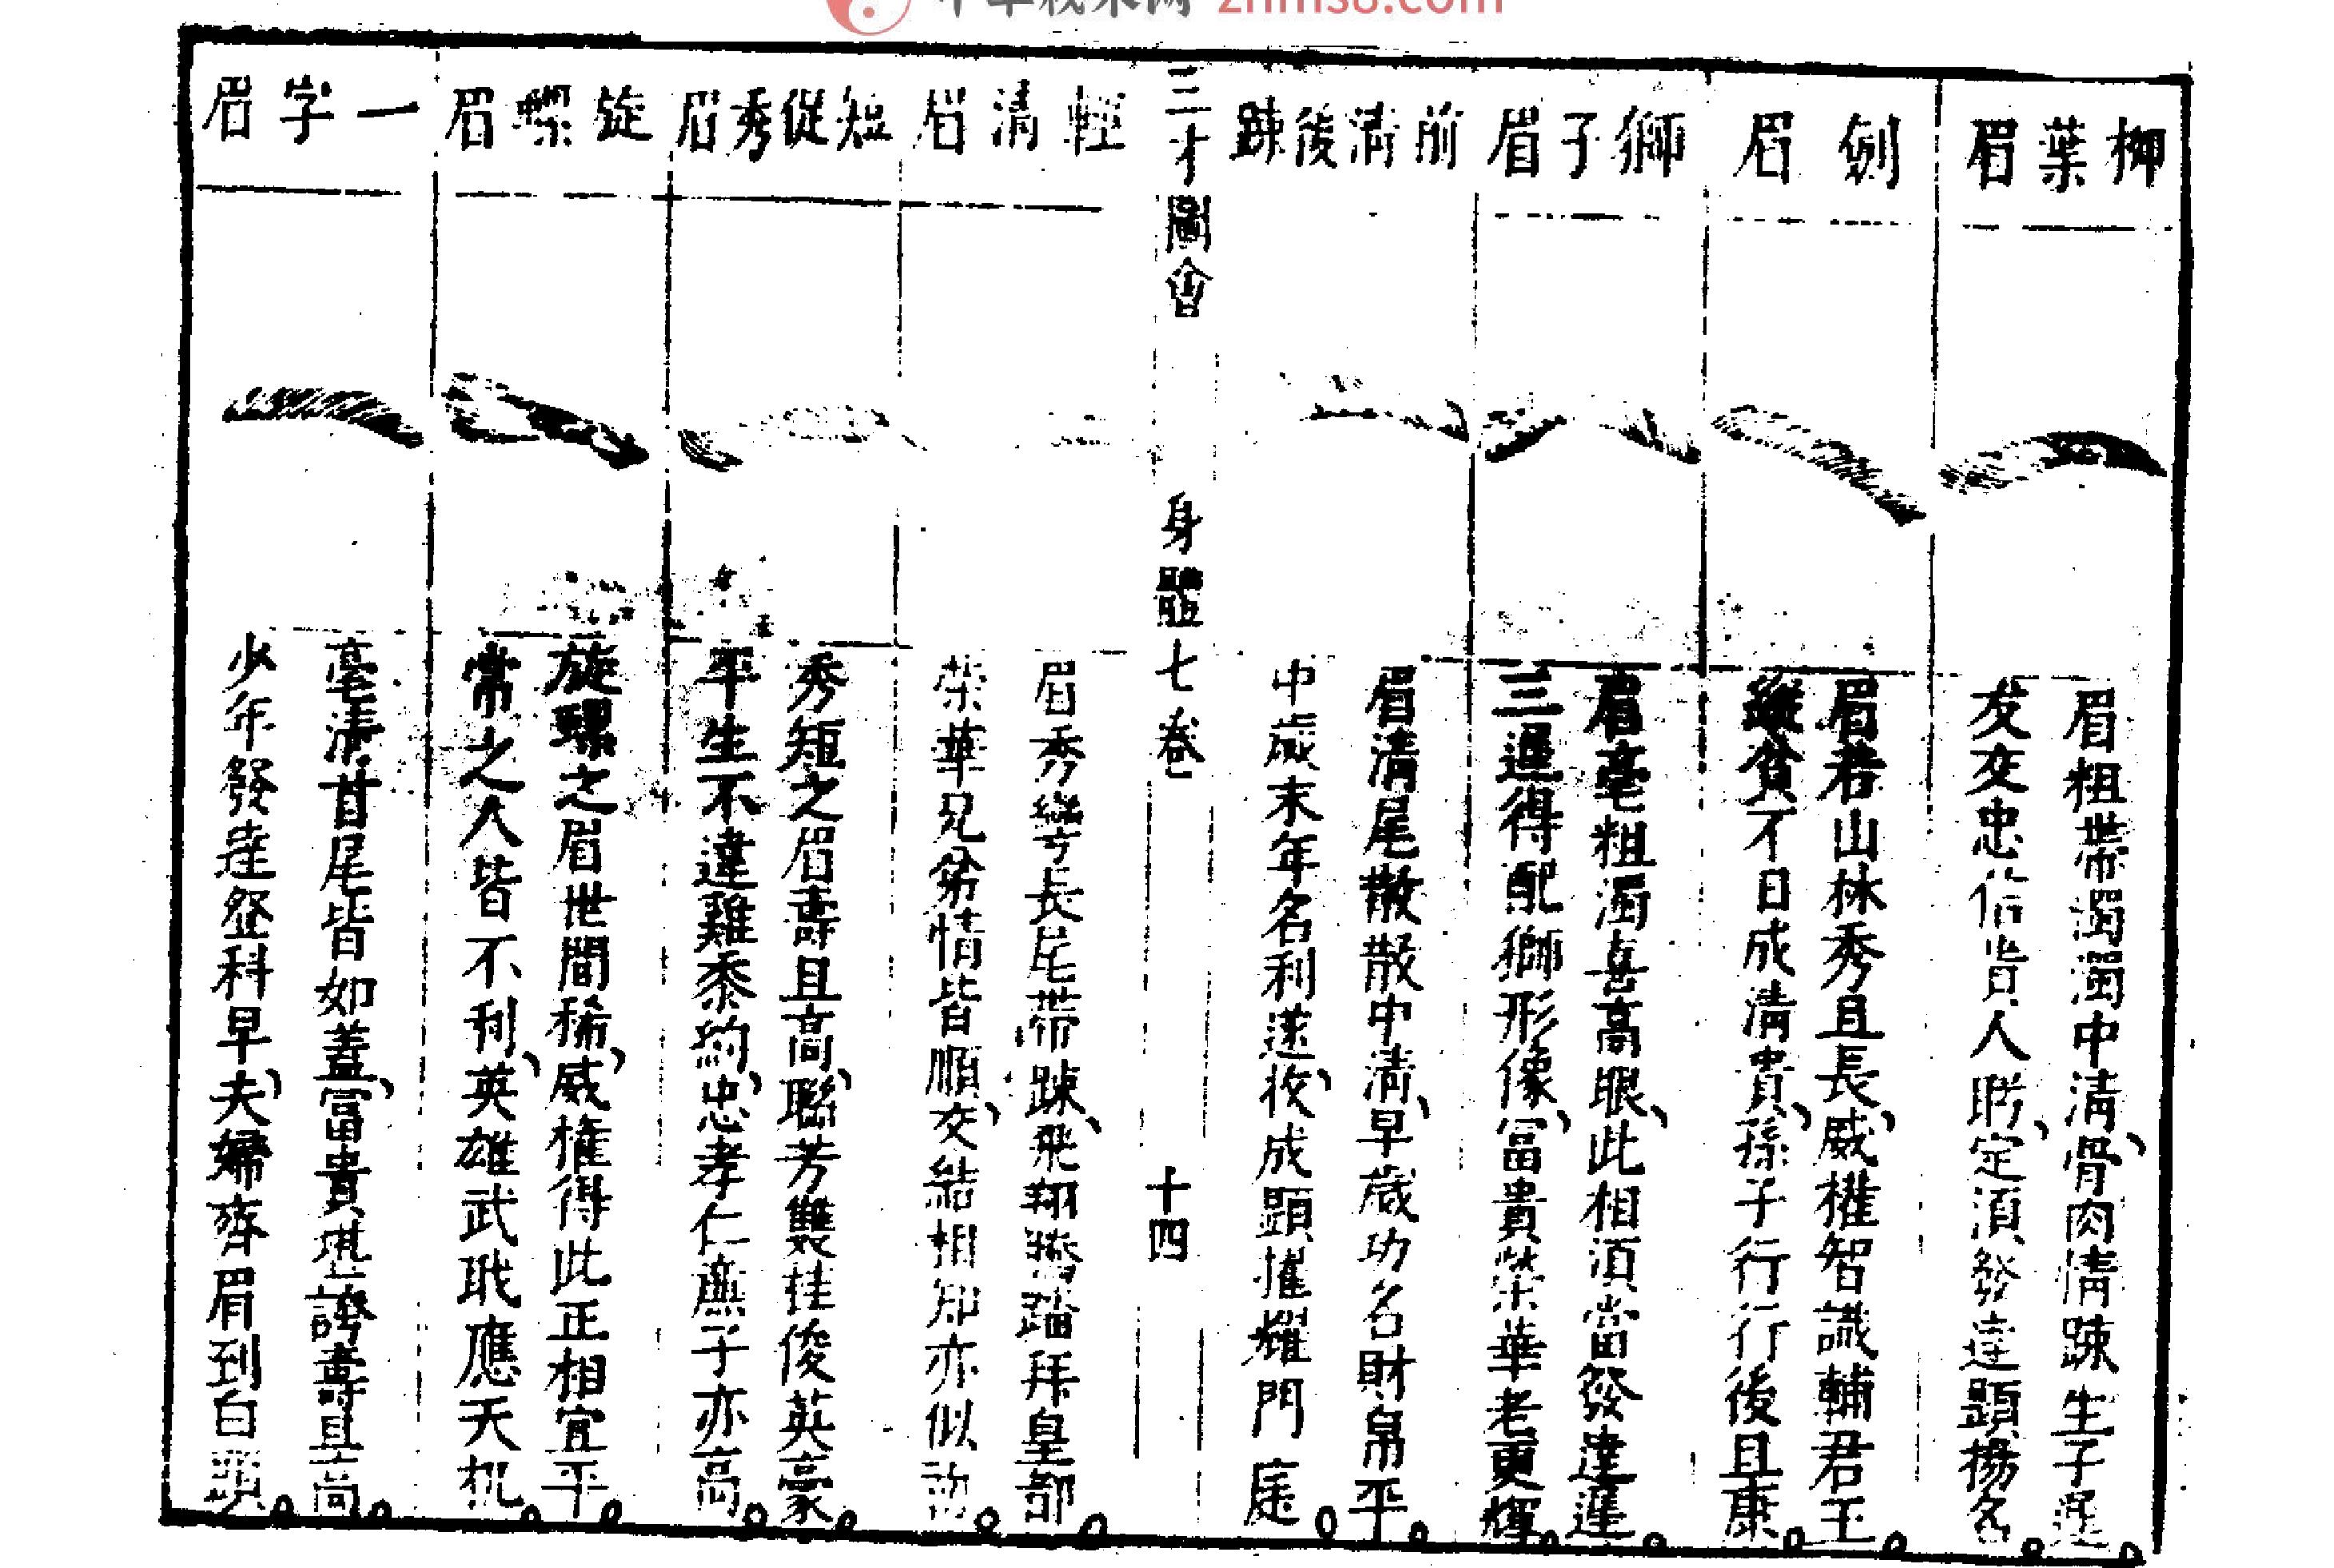 中華秘术网 zhms8.com
柳葉眉
眉粗帶濁濁中清骨肉情踈生子遲
友交忠信貴人盻定湏發達顕揚名
劍眉
眉若山林秀且長威權智識輔君王
縱貧不日成清貴孫子行行後且康
獅子眉
眉毫粗濁喜高眼此相湏當發達遲
三運得配獅形像冨貴榮華老更輝
前清後踈
眉清尾散散中清早歲功名財帛平
中歲末年名利遂收成顕擢耀門庭
三才圖會 身體七卷 十四
輕清眉
眉秀彎長尾帶踈飛翔騰踏拜皇都
榮華兄弟情皆順交結相知亦似初
短促秀眉
秀短之眉壽且高聯芳雙桂俊英豪
平生不違雞黍約忠孝仁廉子亦高
旋螺眉
旋螺之眉世間稀威權得此正相宜平
常之人皆不利英雄武職應天机
一字眉
毫清首尾皆如蓋冨貴堪誇壽且高
少年發達登科早夫婦齊眉到白頭